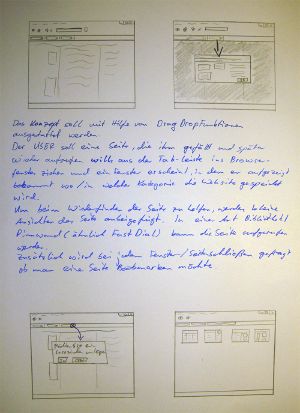 Das Konzept soll mit Hilfe von Drag Drop Funktionen
ausgestattet werden.
Der USER soll eine Seite, die ihm gefällt und später
wieder aufrufen will, aus der Tab-Leiste ins Browser-
fenster ziehen und ein Fenster erscheint, in dem er aufgezeigt
bekommt wo/in welche Kategorie die Website gespeichert
wird.
Um beim Wiederfinden der Seite zu helfen, werden kleine
Ansichten der Seite angefügt. In einer Art Bibliothek/
Pinnwand (ähnlich Fast Dial) kann die Seite aufgerufen
werden.
Zusätzlich wird bei jedem Fenster-/Seitenschließen gefragt
ob man eine Seite Bookmarken möchte.